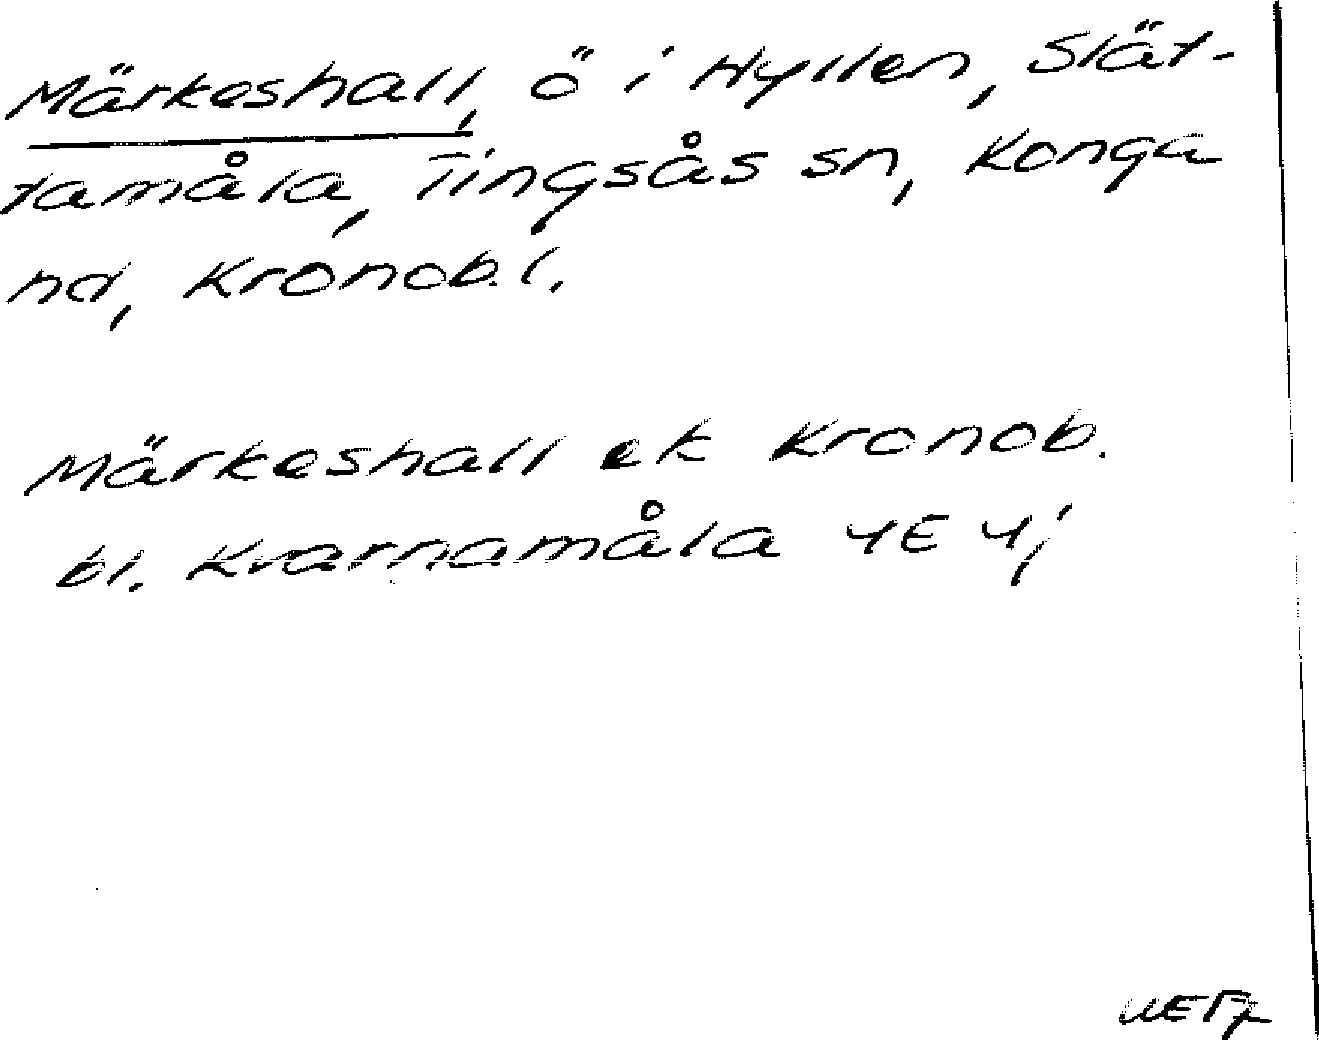 Märkeshall, ö i Hyllen, Slät-
tamåla, Tingsås sn, Konga
hd, Kronob. l.
Märkeshall ek Kronob.
bl. Kvarnamåla 4E 4j